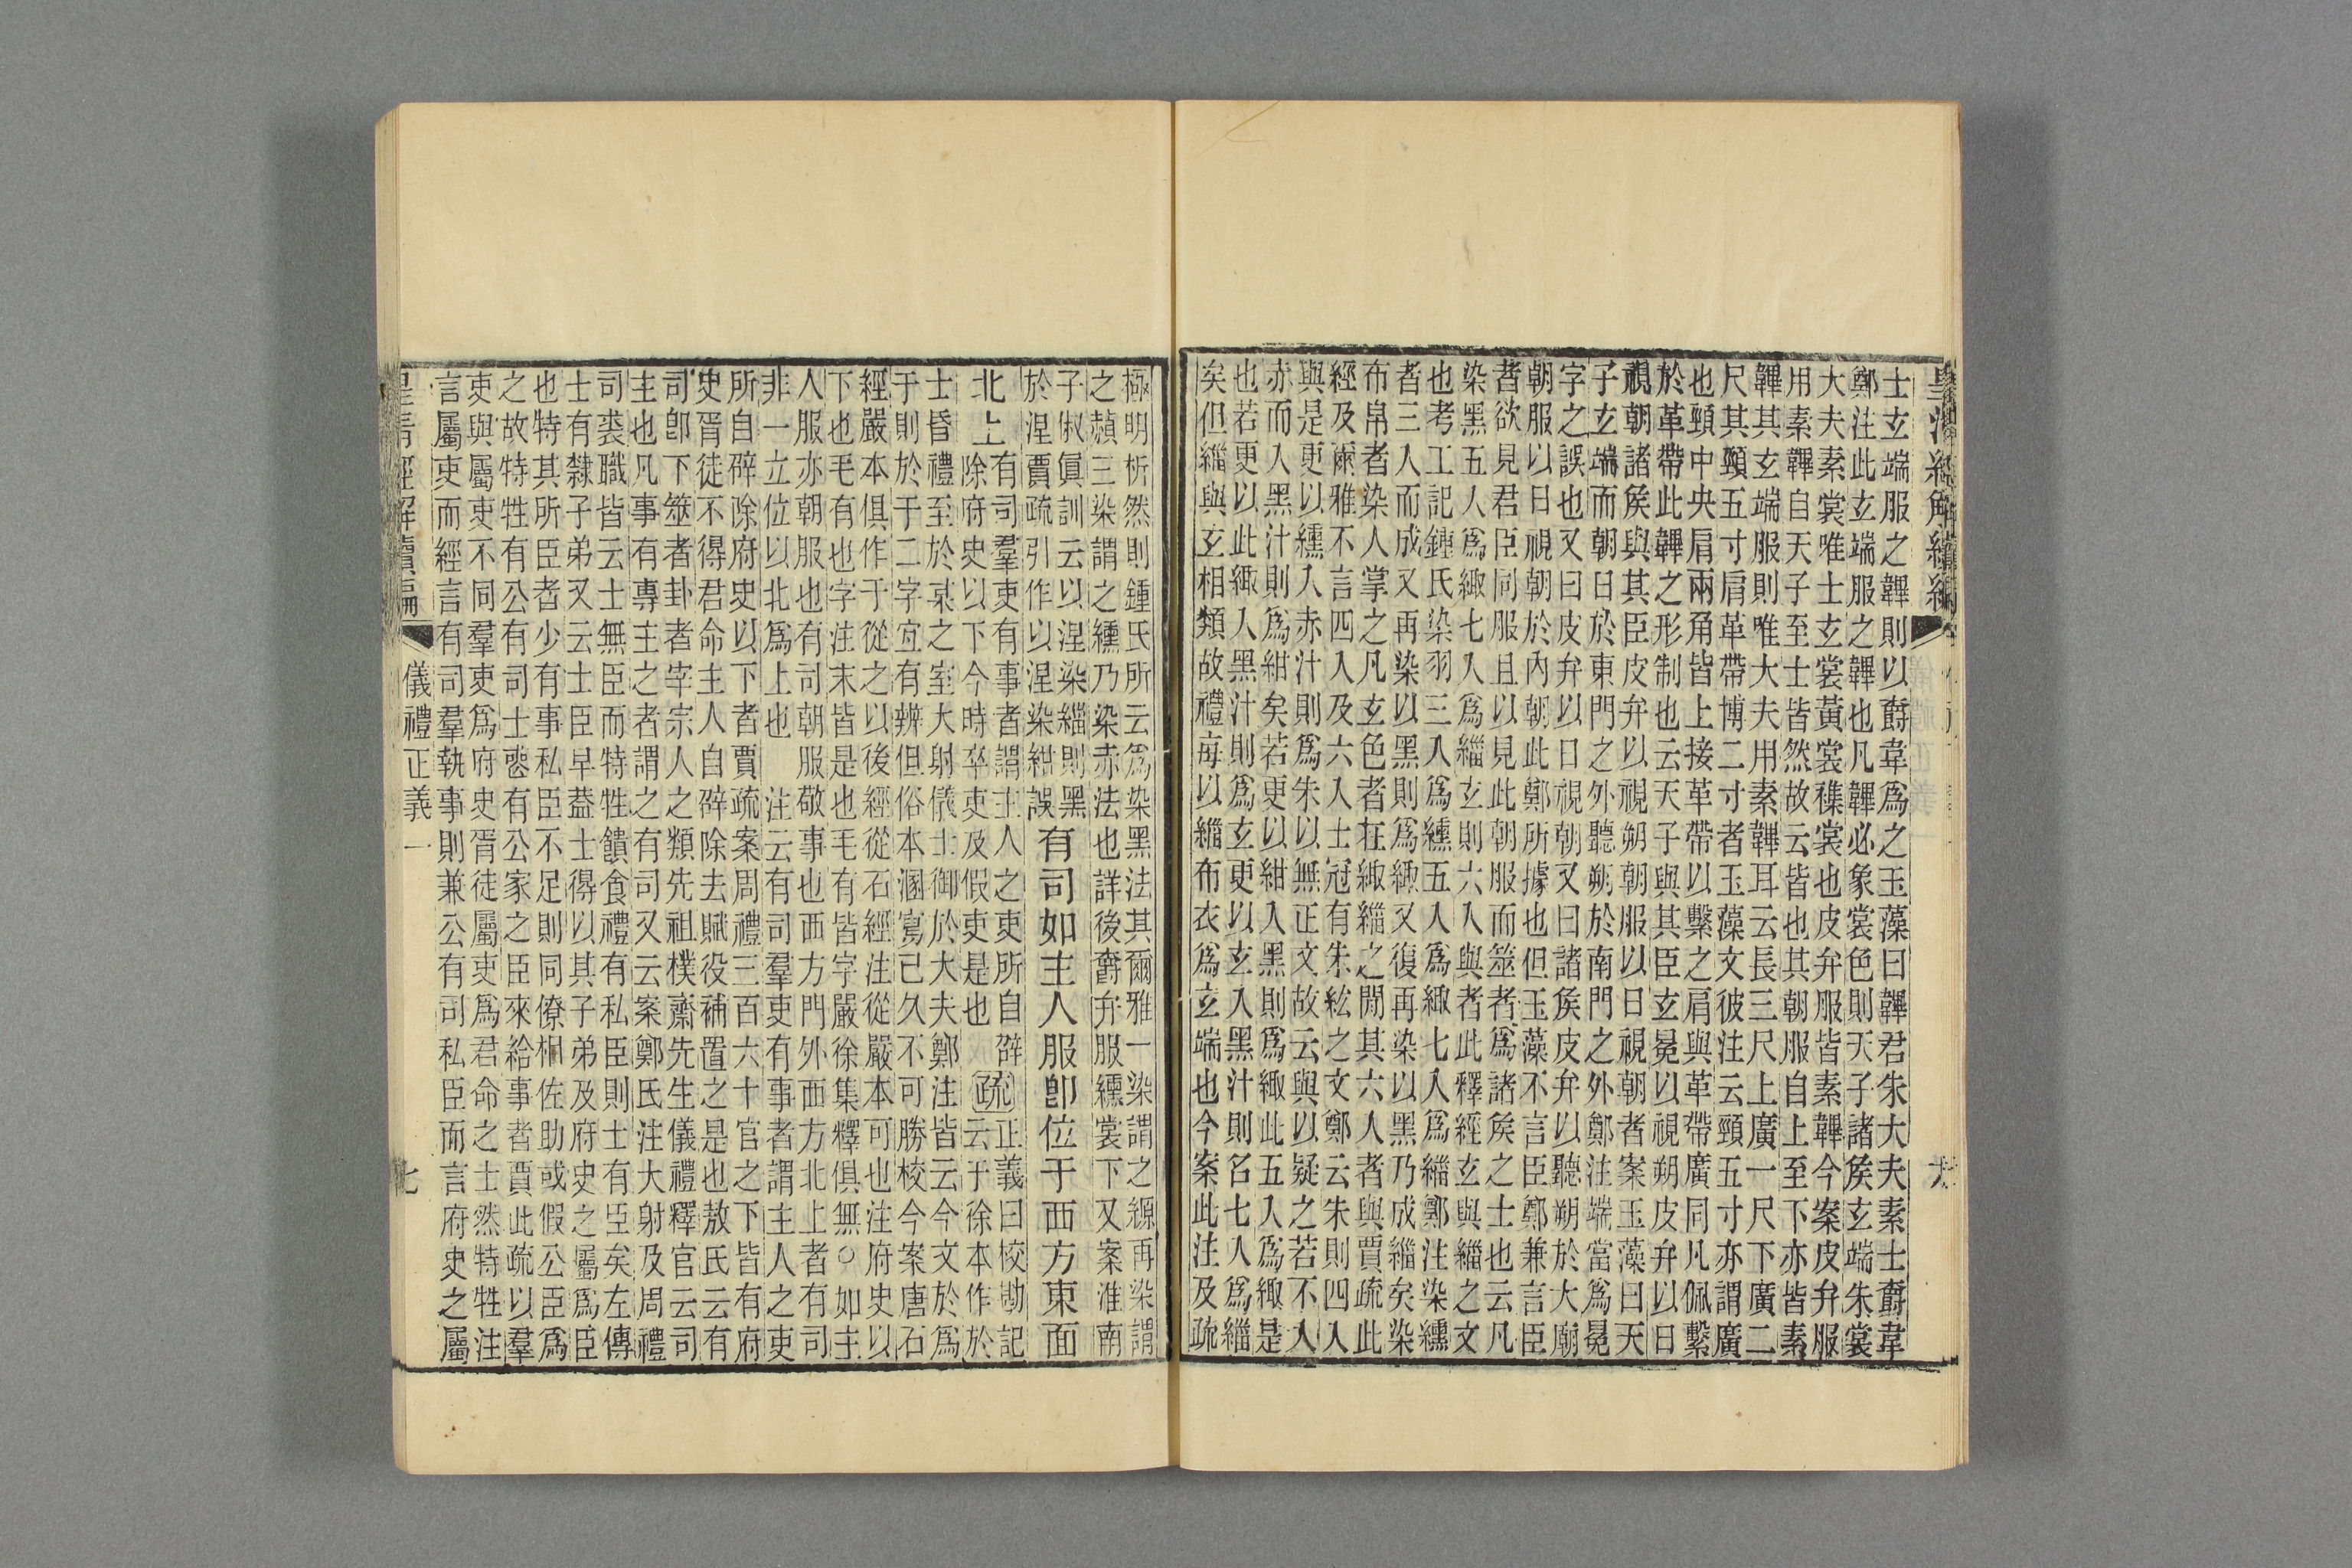 皇清經解續編
士玄端服之韠則以爵韋爲之玉藻曰韠君朱大夫素士爵韋
鄭注此玄端服之韠也凡韠必象裳色則天子諸矦玄端朱裳
大夫素裳唯士玄裳黃裳襍裳也皮弁服皆素韠今案皮弁服
用素韠自天子至士皆然故云皆也其朝服自上至下亦皆素
韠其玄端服則唯大夫用素韠耳云長三尺上廣一尺下廣二
尺其頸五寸肩革帶博二寸者玉藻文彼注云頸五寸亦謂廣
也頸中央肩兩角皆上接革帶以繫之肩與革帶廣同凡佩繫
於革帶此韠之形制也云天子與其臣玄冕以視朔皮弁以日
視朝諸矦與其臣皮弁以視朔朝服以日視朝者案玉藻曰天
子玄端而朝日於東門之外聽朔於南門之外鄭注端當爲冕
字之誤也又曰皮弁以日視朝又曰諸矦皮弁以聽朔於大廟
朝服以日視朝於內朝此鄭所據也但玉藻不言臣鄭兼言臣
者欲見君臣同服且以見此朝服而筮者爲諸矦之士也云凡
染黑五入爲緅七入爲緇玄則六入與者此釋經玄與緇之文
也考工記鍾氏染羽三入爲纁五入爲緅七入爲緇鄭注染纁
者三入而成又再染以黑則爲緅又復再染以黑乃成緇矣染
布帛者染人掌之凡玄色者在緅緇之閒其六入者與賈疏此
經及爾雅不言四入及六入士冠有朱紘之文鄭云朱則四入
與是更以纁入赤汁則爲朱以無正文故云與以疑之若不入
赤而入黑汁則爲紺矣若更以紺入黑則爲緅此五入爲緅是
也若更以此緅入黑汁則爲玄更以玄入黑汁則名七入爲緇
矣但緇與玄相類故禮每以緇布衣爲玄端也今案此注及疏
極明析然則鍾氏所云爲染黑法其爾雅一染謂之縓再染謂
之赬三染謂之纁乃染赤法也詳後爵弁服纁裳下又案淮南
子俶眞訓云以涅染緇則黑
於涅賈疏引作以涅染紺誤
有司如主人服卽位于西方東面
北上
有司羣吏有事者謂主人之吏所自辟
除府史以下今時卒吏及假吏是也
疏
正義曰校勘記
云于徐本作於
士昏禮至於某之室大射儀士御於大夫鄭注皆云今文於爲
于則於于二字宜有辨但俗本溷寫已久不可勝校今案唐石
經嚴本俱作于從之以後經從石經注從嚴本可也注府史以
下也毛有也字注末皆是也毛有皆字嚴徐集釋俱無○如主
人服亦朝服也有司朝服敬事也西方門外西方北上者有司
非一立位以北爲上也　注云有司羣吏有事者謂主人之吏
所自辟除府史以下者賈疏案周禮三百六十官之下皆有府
史胥徒不得君命主人自辟除去賦役補置之是也敖氏云有
司卽下筮者卦者宰宗人之類先祖樸齋先生儀禮釋官云司
主也凡事有專主之者謂之有司又云案鄭氏注大射及周禮
司裘職皆云士無臣而特牲饋食禮有私臣則士有臣矣左傳
士有隸子弟又云士臣皁葢士得以其子弟及府史之屬爲臣
也特其所臣者少有事私臣不足則同僚相佐助或假公臣爲
之故特牲有公有司士喪有公家之臣來給事者賈此疏以羣
吏與屬吏不同羣吏爲府史胥徒屬吏爲君命之士然特牲注
言屬吏而經言有司羣執事則兼公有司私臣而言府史之屬
皇清經解續編
儀禮正義一
七